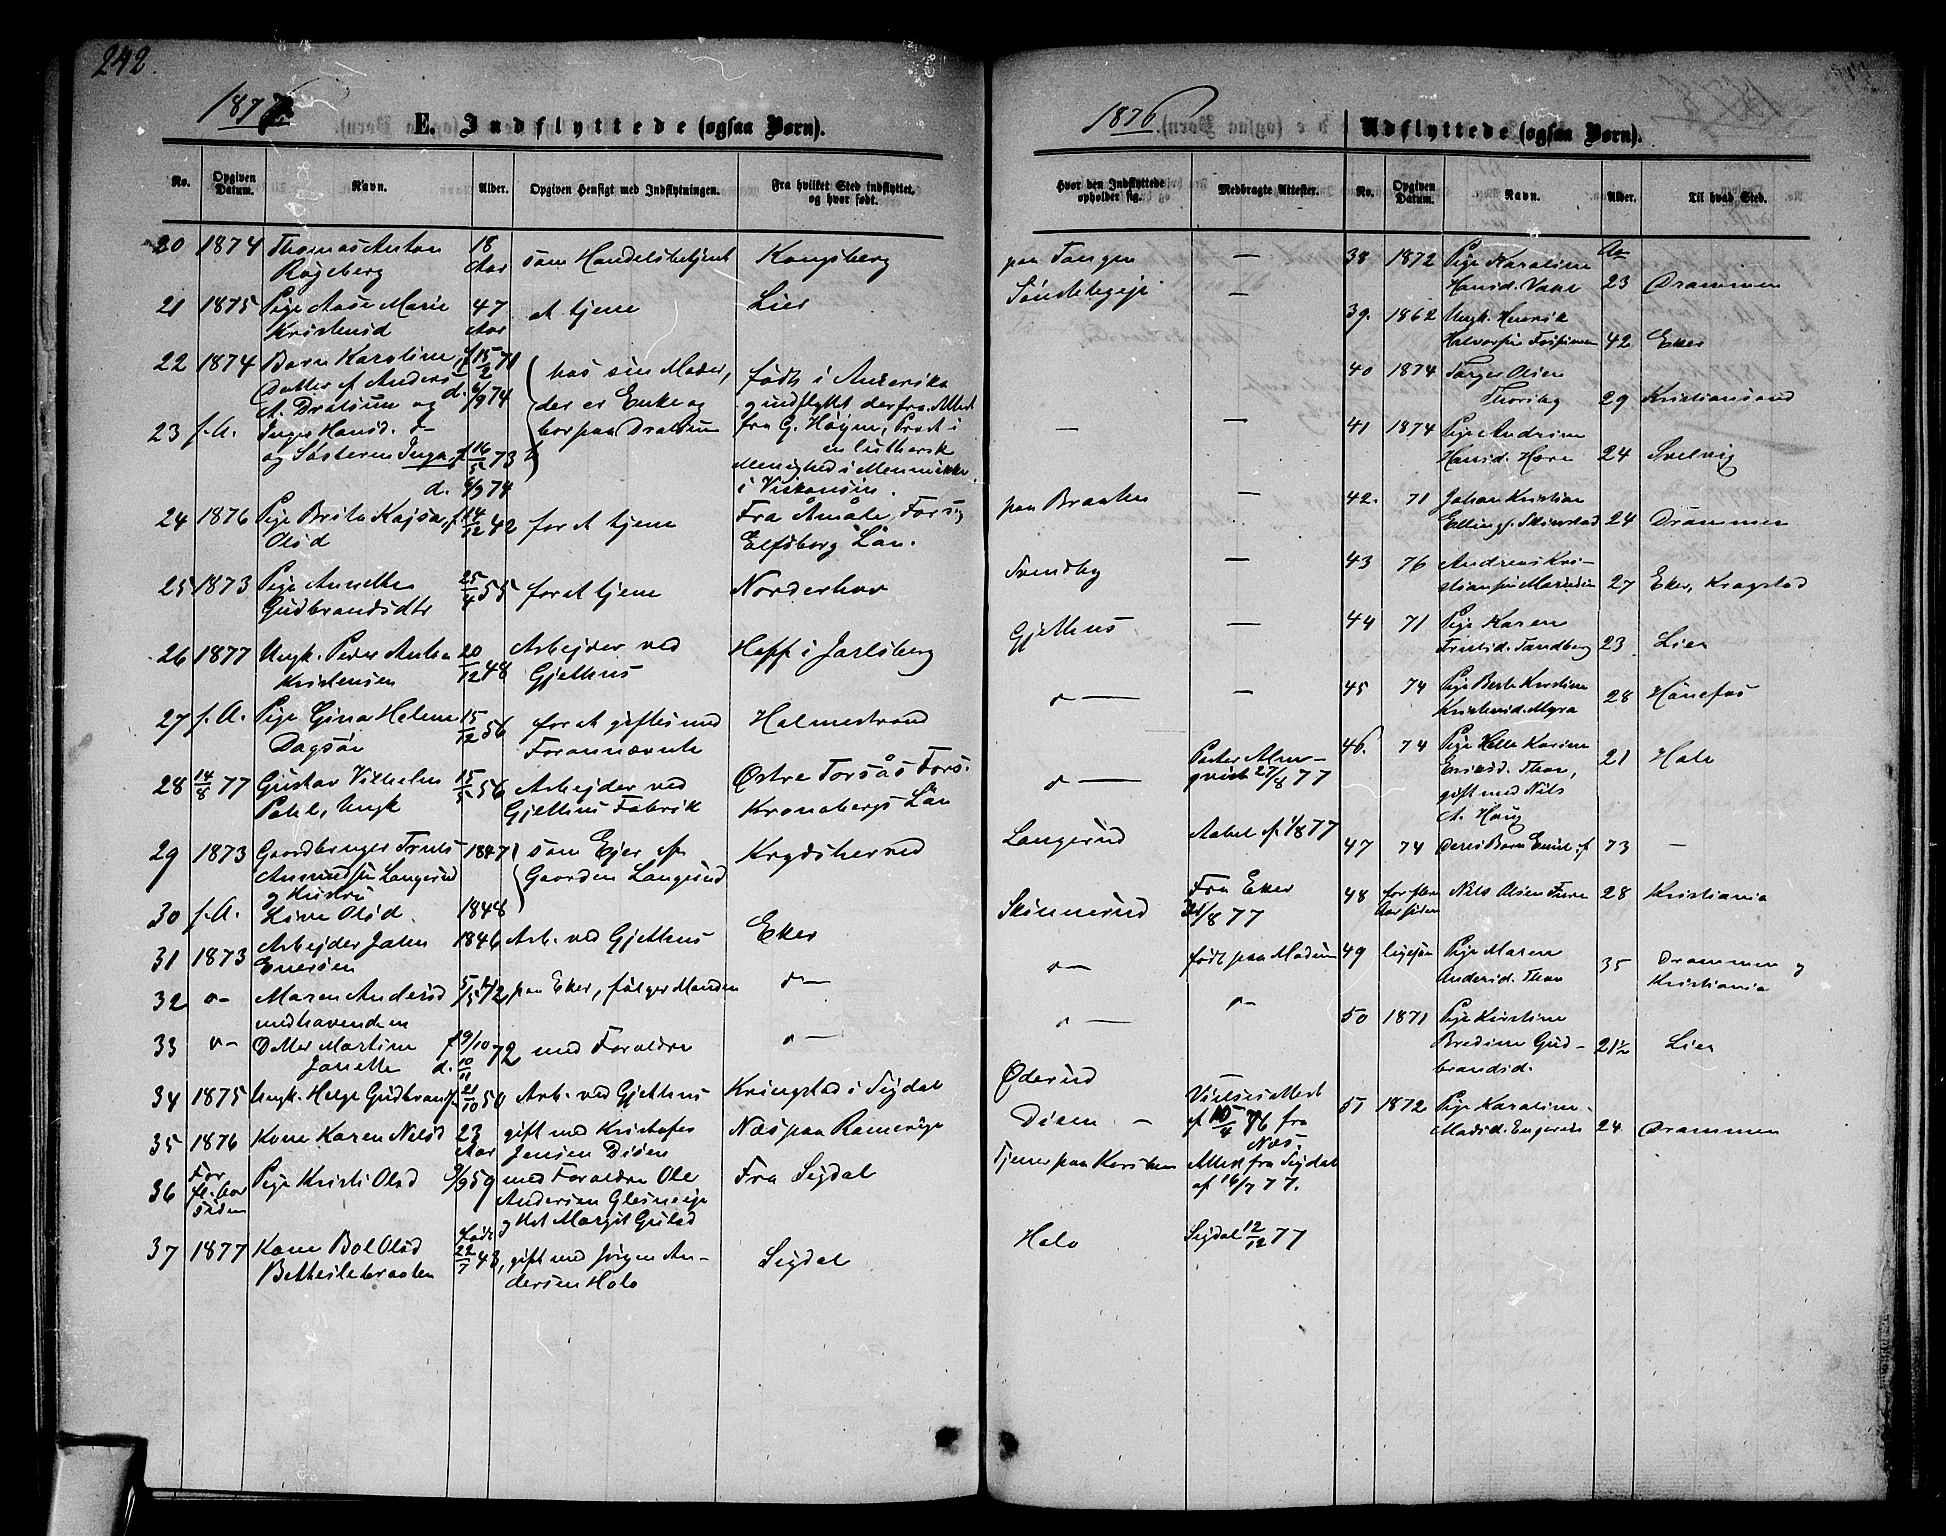 242.
1877
E. Indflyttede (ogsaa Børn).
No.
Opgiven Datum.
Navn.
Alder.
Opgiven Hensigt med Indflytningen.
Fra hvilket Sted indflyttet, og hvor født.
20 1874 Thomas Anton 18 som Handelsbetjent Kongsberg
Røgeberg Aar
21 1875 Pige Aase Marie 47 at tjene Lier
Kristensd Aar
22 1874 Barn Karoline, f 15/2 71 hos sin Moder, født i Amerika
Datter af Anders d. 6/9 74 der er Enke og og indflyttet derfra. Attest
A. Dralsun og bor paa Dralsun fra G. Høyme, Præst i
23 f. A. Inger Hansd. en luthersk
og Søsteren Inga, f 16/5 73 Menighed i Menomike
d. 6/9 74 i Viskonsin.
24 1876 Pige Brita Kajsa, f 14/12 42 for at tjene Fra Åmåle Fors,
Olsd Elfsborg Län.
25 1873 Pige Annethe 25/4 55 for at tjene Norderhov
Gudbrandsdtr
26 1877 Ungk. Peder Anton 20/12 48 Arbejder ved Hoff i Jarlsberg
Kristensen Gjethus
27 f. A. Pige Gina Helene 15/12 56 for at giftes med Holmestrand
Dagsør Forannævnte
28 14/8 77 Gustav Vilhelm 15/5 56 Arbejder ved Østre Torsås Fors.
Pahl, Ungk Gjethus Fabrik Kronobergs Län
29 1873 Gaardbruger Truls 1847 som Ejer af Krydsherred
Amundsen Langerud Gaarden Langerud
og Hustru
30 f. A. Live Olsd. 1848
31 1873 Arbejder Johan 1846 Arb. ved Gjethus Eker
Enersen
32 Maren Andersd paa Eker, følger Manden
medhavende en
33 Datter Martine f 9/10 72 med Forældre
Janette d. 10/11
34 1875 Ungk. Helge Gudbrands. 21/10 50 Arb. ved Gjethus Kringstad i Sigdal
35 1876 Kone Karen Nilsd 23 gift med Kristofer Næs paa Romerige
Aar Jensen Disen
36 For fl. Aar siden Pige Kristi Olsd 9/9 59 med Forældre Ole Fra Sigdal
Andersen Glesneeje
og Hst Margit Gulsd
37 1877 Kone Bol Olsd født 22/7 43, gift med Jørgen An- Sigdal
Bethestebraaten dersen Holo
1876
Hvor den Indflyttede opholder sig.
Medbragte Attester.
paa Tangen —
Søndstegeje —
— —
paa Braaten —
Svendby —
Gjethus —
—
Pastor Alm-
qvist 27/8 77
Langerud Aabel af 1/8 77
Skinnerud Fra Eker
/8 77
født paa Modum
Øderud
Disen — Vielses Attest
af 10/4 76 fra
Næs
Tjener paa Kersten Attest fra Sigdal
af 16/7 77.
Holo Sigdal 12/12 77
Udflyttede (ogsaa Børn).
No.
Opgiven Datum.
Navn.
Alder.
Til hvad Sted.
38 1872 Pige Karoline Aar
Hansd. Vaker 23 Drammen
39. 1862 Ungk. Henrik
Halvorsen Fossumen 42 Eker
40 1874 Torger Olsen
Thorsby 29 Kristiansand
41 1874 Pige Andrine
Hansd. Horn 24 Svelvig
42. 71 Johan Kristian
Ellings. Skinstad 24 Drammen
43 76 Andreas Kri-
stiansen 27 Eker, Krogstad
44 71 Pige Karen
Trulsd. Sandberg 23 Lier
45 74 Pige Berte Kristine
Kristensd. Myra 28 Hønefos
46. 74 Pige Helle Karine
Eriksd. Thon, 21 Holo
gift med Nils
A. Haug
47 74 Deres Barn Emil f 73 —
48 for flere Aar siden Nils Olsen Fure 28 Kristiania
49 ligesaa Pige Maren
Andersd. Thon 35 Drammen og
Kristiania
50 1871 Pige Kirstine
Bredine Gud- 21½ Lier
brandsd.
51 1872 Pige Karoline
Madsd. Engerud 24 Drammen